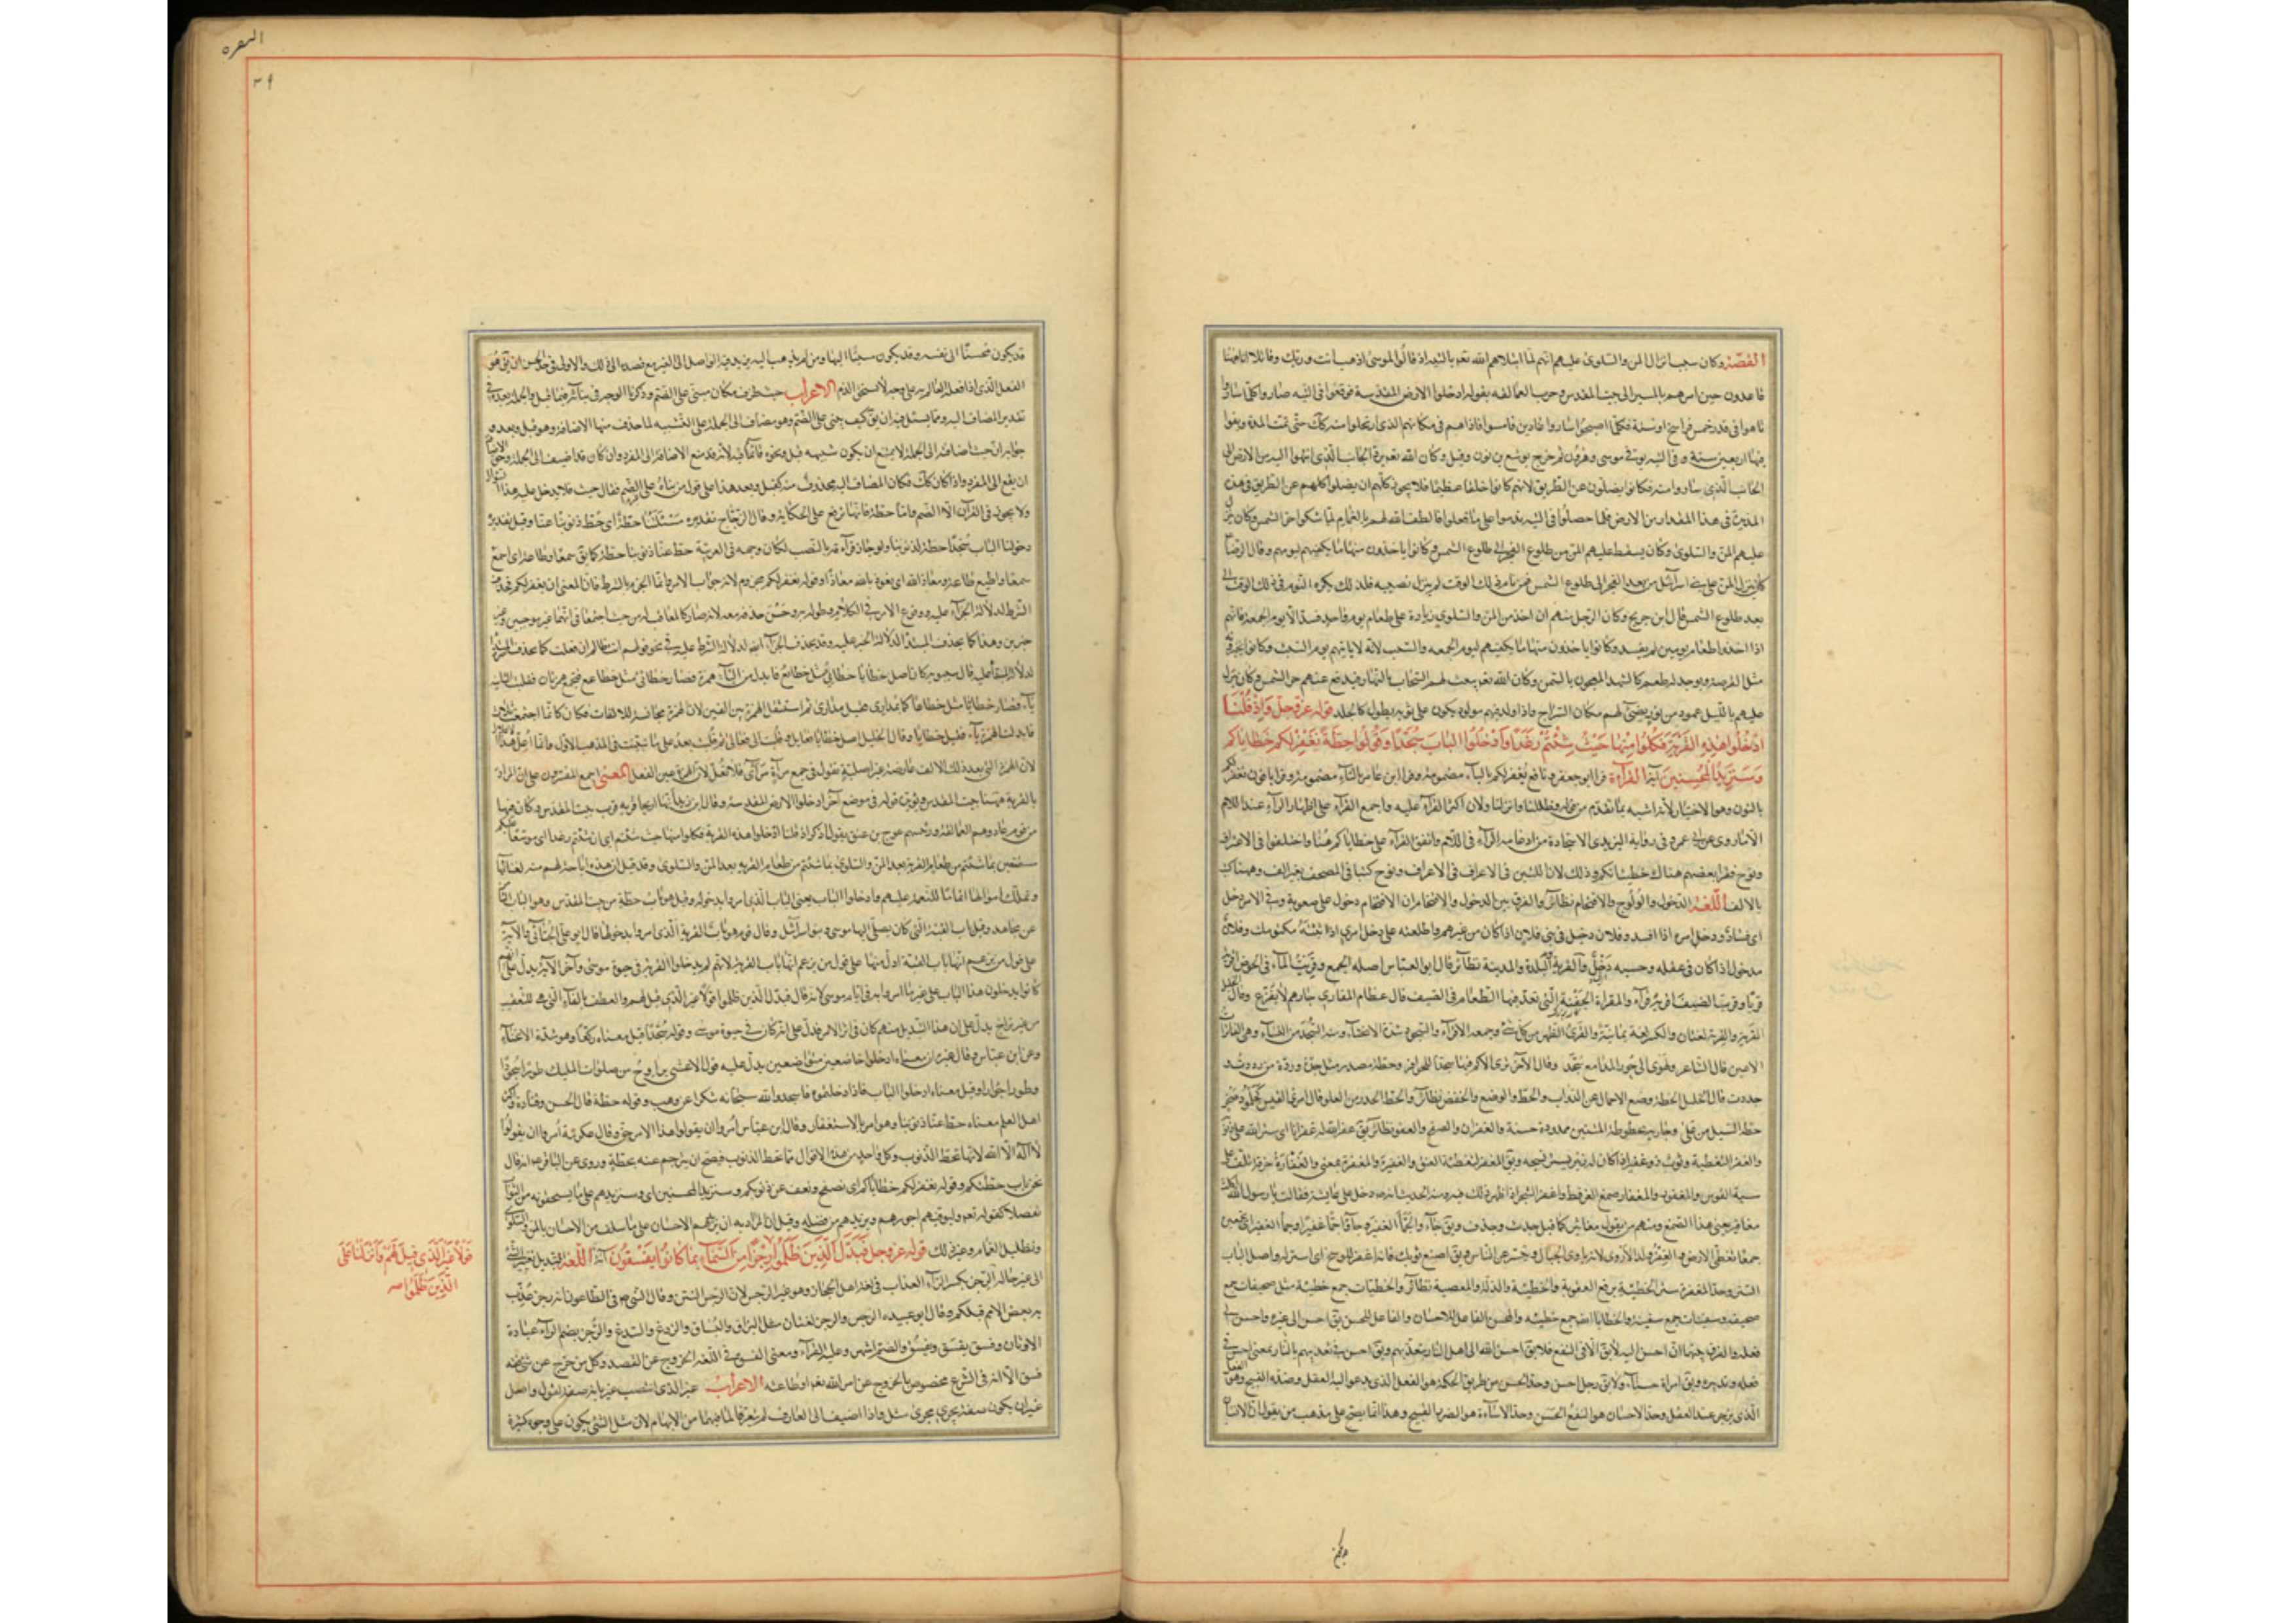 القصّة وكان سبب انزال المن والسلوى عليهم انهم لما ابتلاهم الله تعم بالتيه اذ قالوا لموسى اذهب انت وربك وقاتلا انا ههنا
قاعدون حين امرهم بالمسير الى بيت المقدس وحرب العمالقة بقوله ادخلوا الارض المقدسة فوقعوا فى التيه صاروا كلما ساروا
تاهوا فى قدر خمس فراسخ او ستة فكلما اصبحوا ساروا غادين فامسوا فاذا هم فى مكانهم الذى ارتحلوا منه كك حتى تمت المدة وبقوا
فيها اربعين سنة وفى التيه توفى موسى وهرون ثم خرج يوشع بن نون وقيل وكان الله تعم يرد الجانب الذى انتهوا اليه من الارض الى
الجانب الذى ساروا منه فكانوا يضلون عن الطريق لانهم كانوا خلقا عظيما فلا يجوز كلهم ان يضلوا كلهم عن الطريق فى هذه
المدة فى هذا المقدار من الارض فلما حصلوا فى التيه ندموا على ما فعلوا فالطف الله لهم بالغمام لما شكوا حر الشمس وكان ينزل
عليهم المن والسلوى وكان يسقط عليهم المن من طلوع الفجر الى طلوع الشمس وكانوا ياخذون منها ما يكفيهم ليومهم وقال الصادق
كان ينزل المن على بنى اسرائيل من بعد الفجر الى طلوع الشمس فمن نام فى ذلك الوقت لم ينزل نصيبه فلذلك يكره النوم فى ذلك الوقت الى
بعد طلوع الشمس قال ابن جريج وكان الرجل منهم ان اخذ من المن والسلوى زيادة على طعام يوم واحد فسد الا يوم الجمعة فانهم
اذا اخذوا طعام يومين لم يفسد وكانوا ياخذون منها ما يكفيهم ليوم الجمعه والسبت لانه لا ياتيهم يوم السبت وكانوا يخبزونه
مثل القرصة ويوجد له طعم كالشهد المعجون بالسمن وكان الله تعم يبعث لهم السحاب بالنهار فيدفع عنهم حر الشمس وكان ينزل
عليهم بالليل عمود من نور يضئ لهم مكان السراج واذا ولد فيهم مولود يكون عليه ثوب يطول كالجلد قوله عز وجل وَاِذْ قُلْنَا
ادْخُلُوا هٰذِهِ الْقَرْيَةَ فَكُلُوا مِنْهَا حَيْثُ شِئْتُمْ رَغَدًا وَادْخُلُوا الْبَابَ سُجَّدًا وَقُولُوا حِطَّةٌ نَغْفِرْ لَكُمْ خَطَايَاكُمْ
وَسَنَزِيدُ الْمُحْسِنِينَ آية القراءة قرا ابو جعفر ونافع يغفر لكم بالياء مضمومة وقرا ابن عامر بالتاء مضمومة وقرا الباقون نغفر لكم
بالنون وهو الاختيار لانه اشبه بما تقدم من قوله وظللنا وانزلنا ولان اكثر القراء عليه واجمع القراء على اظهار الراء عند اللام
الا ما روى عن ابى عمرو فى رواية اليزيدى الاستجادة من ادغامه الراء فى اللام واتفق القراء على خطاياكم هنا واختلفوا فى الاعراف
ونوح فقرا بعضهم هناك خطيئاتكم وذلك لان اللتين فى الاعراف ونوح كتبا فى المصحف بغير الف وههنا كتب
بالالف اللّغة الدخول والولوج والاقتحام نظائر والفرق بين الدخول والاقتحام ان الاقتحام دخول على صعوبة وفى الامر دخل
اى فساد ودخل امره اذا افسد وفلان دخيل فى بنى فلان اذا كان من غيرهم واطلعته على دخل امرى اذا بثثته مكتومك وفلان
مدخول اذا كان فى عقله وحسبه دخل والقرية والبلدة والمدينة نظائر قال ابو العباس اصله الجمع وقريت الماء فى الحوض
قريا وقريت الضيف اقريه قراء والمقراة الجفنة التى تعد فيها الطعام للضيف قال عظام المقارى جارهم لا يفزع وقال الخليل
القرية والقرية لغتان والكسر لغة يمانية والقرى الظهر من كل شئ وجمعه الاقراء والسجود شدة الانحناء ومنه السجد من النساء وهى الفاترات
الاعين قال الشاعر ولهوى الى حور المدامع سجد وقال الآخر ترى الاكم فيها سجدا للحوافر وحطة مصدر مثل جدة وردة من رددت
جددت قال الخليل الحطة وضع الاحمال عن الدواب والحط والوضع والخفض نظائر والحط الحدر من العلو قال امرئ القيس كجلمود صخر
حطه السيل من عل وجارية محطوطة المتنين ممدودة حسنة والغفران والصفح والعفو نظائر يقال غفر الله له غفرانا اى ستر الله على ذنوبه
والغفر التغطية وثوب ذو غفر اذا كان له زئبر يستر نسجه ويق المغفر لتغطيته العنق والغفيرة والمغفرة بمعنى والغفارة خرقة تلف على
سية القوس والمغفور والمغفار صمغ العرفط واغفر الشجر اذا ظهر ذلك فيه ومنه الحديث انه دخل على عايشة فقالت يا رسول الله اكلت
مغافير يعنى هذا الصمغ ومنهم من يقول مغاثير كما قيل جدث وجدف ويق جاء والجماء الغفيرة وجاءوا جما غفيرا وجماء الغفير اى مجتمعين
جمعا يغطى الارض والغفر ولد الاروى لانه ياوى الجبال ويستتر عن الناس ويق اصبغ ثوبك فانه اغفر للوسخ اى استر له واصل الباب
الستر وحد المغفرة ستر الخطيئة برفع العقوبة والخطيئة والذلة والمعصية نظائر والخطيئات جمع خطيئة مثل صحيفات جمع
صحيفة وسفينات جمع سفينة والخطايا ايضا جمع خطيئة والمحسن الفاعل للاحسان والفاعل للحسن يق احسن الى غيره واحسن فى
فعله والفرق بينهما ان احسن اليه لا يق الا فى النفع فلا يق احسن الله الى اهل النار بتعذيبهم ويق احسن فى تعذيبهم بالنار بمعنى احسن فى
فعله وتدبيره ويق امراة حسناء ولا يق رجل احسن وحد الحسن من طريق الحكمة هو الفعل الذى يدعو اليه العقل وضده القبيح وهو الفعل
الذى يزجر عنه العقل وحد الاحسان هو النفع الحسن وحد الاساءة هو الضرر القبيح وهذا انما يصح على مذهب من يقول ان الانسان
البقره
قد يكون محسنا الى نفسه وقد يكون مسيئا اليها ومن لم يذهب اليه يزيد فيه الواصل الى الغير مع قصده الى ذلك والاولى فى حد الحسن ان يق هو
الفعل الذى اذا فعله العالم به على وجه لم يستحق الذم الاعراب حيث ظرف مكان مبنى على الضم وذكرنا الوجه فى بنائه فيما قبل والجملة بعده فى
تقدير المضاف اليه ومما يسئل فيه ان يق كيف بنى على الضم وهو مضاف الى الجملة على التشبيه لما حذف منها الاضافة وهو قبل وبعد و
جوابه ان حيث اضافته الى الجملة لا يمنع ان يكون شبهه قبل ونحوه قائما فيه لانه قد منع الاضافة الى المفرد وان كان قد اضيف الى الجملة وحق الاضافة
ان يقع الى المفرد واذا كان كك فكان المضاف اليه محذوف منه كقبل وبعد هذا على قول من بناه على الضم فقال حيث فلا يدخل عليه هذا السؤال
ولا يجوز فى القرآن الا الضم واما حطة فانما ترتفع على الحكاية وقال الزجاج تقديره مسئلتنا حطة اى حط ذنوبنا عنا وقيل تقديره
دخولنا الباب سجدا حطة لذنوبنا ولو جاز قراءته بالنصب لكان وجهه فى العربية حط عنا ذنوبنا حطة كما يق سمعا وطاعة اى اسمع
سمعا واطيع طاعة ومعاذ الله اى نعوذ بالله معاذا وقوله نغفر لكم مجزوم لانه جواب الامر وانما الجزم بالشرط فان المعنى ان يغفر لكم فحذف
الشرط لدلالة الجزاء عليه ووقوع الامر فى الكلام وطوله به وحسن حذفه معه لانه صار كالمعاقب له من حيث اجتمعا فى انهما غير موجبين وغير
خبرين وهذا كما يحذف المبتدا لدلالة الخبر عليه وقد يحذف الجزاء ايضا لدلالة الشرط عليه فى نحو قولهم انت ظالم ان فعلت كما يحذف خبر المبتدا
لدلالة المبتدا عليه قال سيبويه كان اصل خطايا خطائى مثل خطاىع فابدل من الياء همزة فصار خطائى مثل خطاعع فتجتمع همزتان فقلبت الثانية
ياء فصار خطائى مثل خطاعى ثم استثقل الهمزة بين الفين لان الهمزة مجانسة للالفات فكان كانما اجتمعت ثلث
فابدلت الهمزة ياء فقيل خطايا وقال الخليل اصل خطايا فعايل
لان الهمزة التى بعد ذلك الالف عارضة غير اصلية تقول فى جمع مرآة مرآئى فلا تعل لان الهمزة عين الفعل المعنى اجمع المفسرون على ان المراد
بالقرية ههنا بيت المقدس ويؤيده قوله فى موضع آخر ادخلوا الارض المقدسة وقال ابن زيد انها اريحا قرية قرب بيت المقدس وكان فيها
من قوم عاد وهم العمالقة ورئيسهم عوج بن عنق يقول اذكروا اذ قلنا ادخلوا هذه القرية فكلوا منها حيث شئتم اى اين شئتم رغدا اى موسعا عليكم
مستمتعين بما شئتم من طعام القرية بعد المن والسلوى وقد قيل ان هذه اباحة لهم منه لغنائمها
وتملك اموالها اتماما للنعمة عليهم وادخلوا الباب يعنى الباب الذى امروا بدخوله وقيل هو باب حطة من بيت المقدس وهو الباب الثامن
عن مجاهد وقيل باب القبة التى كان يصلى اليها موسى وبنو اسرائيل وقال قوم هو باب القرية التى امروا بدخولها قال ابو على الجبائى والآية
على قول من يزعم انها باب القبة اولى منها على قول من يزعم انها باب القرية لانهم لم يدخلوا القرية فى حيوة موسى وآخر الآية يدل على انهم
كانوا يدخلون هذا الباب على غير ما امروا به فى ايام موسى لانه قال فبدل الذين ظلموا قولا غير الذى قيل لهم والعطف بالفاء التى هى للتعقيب
من غير تراخ يدل على ان هذا التبديل منهم كان فى اثر الامر فدل على انه كان فى حيوة موسى وقوله سجدا قيل معناه ركعا وهو شدة الانحناء
وعن ابن عباس وقال غيره ان معناه ادخلوا خاضعين متواضعين يدل عليه قول الاعشى يراوح من صلوات المليك طورا سجودا
وطورا جؤارا وقيل معناه ادخلوا الباب فاذا دخلتموه فاسجدوا لله سبحانه شكرا عن وهب وقوله حطة قال الحسن وقتادة واكثر
اهل العلم معناه حط عنا ذنوبنا وهو امر بالاستغفار وقال ابن عباس امروا ان يقولوا هذا الامر حق وقال عكرمة امروا ان يقولوا
لا اله الا الله لانها تحط الذنوب وكل واحد من هذه الاقوال مما تحط الذنوب فيصح ان يترجم عنه بحطة وروى عن الباقر عه انه قال
نحن باب حطتكم وقوله نغفر لكم خطاياكم اى نصفح ونعف عن ذنوبكم وسنزيد المحسنين اى وسنزيدهم على ما يستحقونه من الثواب
تفضلا كقوله تعم ليوفيهم اجورهم ويزيدهم من فضله وقيل ان المراد به ان يزيدهم الاحسان على ما سلف من الاحسان بالمن والسلوى
وتظليل الغمام وغير ذلك قوله عز وجل فَبَدَّلَ الَّذِينَ ظَلَمُوا رِجْزًا مِنَ السَّمَاءِ بِمَا كَانُوا يَفْسُقُونَ آية اللّغة التبديل تغيير الشئ
قَوْلًا غَيْرَ الَّذِى قِيلَ لَهُمْ فَاَنْزَلْنَا عَلَى
الَّذِينَ ظَلَمُوا صح
الى غير حاله الرجز بكسر الراء العذاب فى لغة اهل الحجاز وهو غير الرجس لان الرجس النتن وقال النبى ص فى الطاعون انه رجز عذب
به بعض الامم قبلكم وقال ابو عبيده الرجس والرجز لغتان مثل البزاق والبساق والزدغ والسدغ والرجز بضم الراء عبادة
الاوثان وفسق يفسق ويفسق والضم اشهر وعليه القراء ومعنى الفسق فى اللغة الخروج عن القصد وكل من خرج عن شئ فقد
فسق الا انه فى الشرع مخصوص بالخروج عن امر الله تعم او طاعته الاعراب غير الذى انتصب غير بانه صفة لقول واصل
غير ان يكون صفة يجرى مجرى مثل واذا اضيف الى المعارف لم يتعرف لما فيها من الابهام لان مثل الشئ يكون على وجوه كثيرة